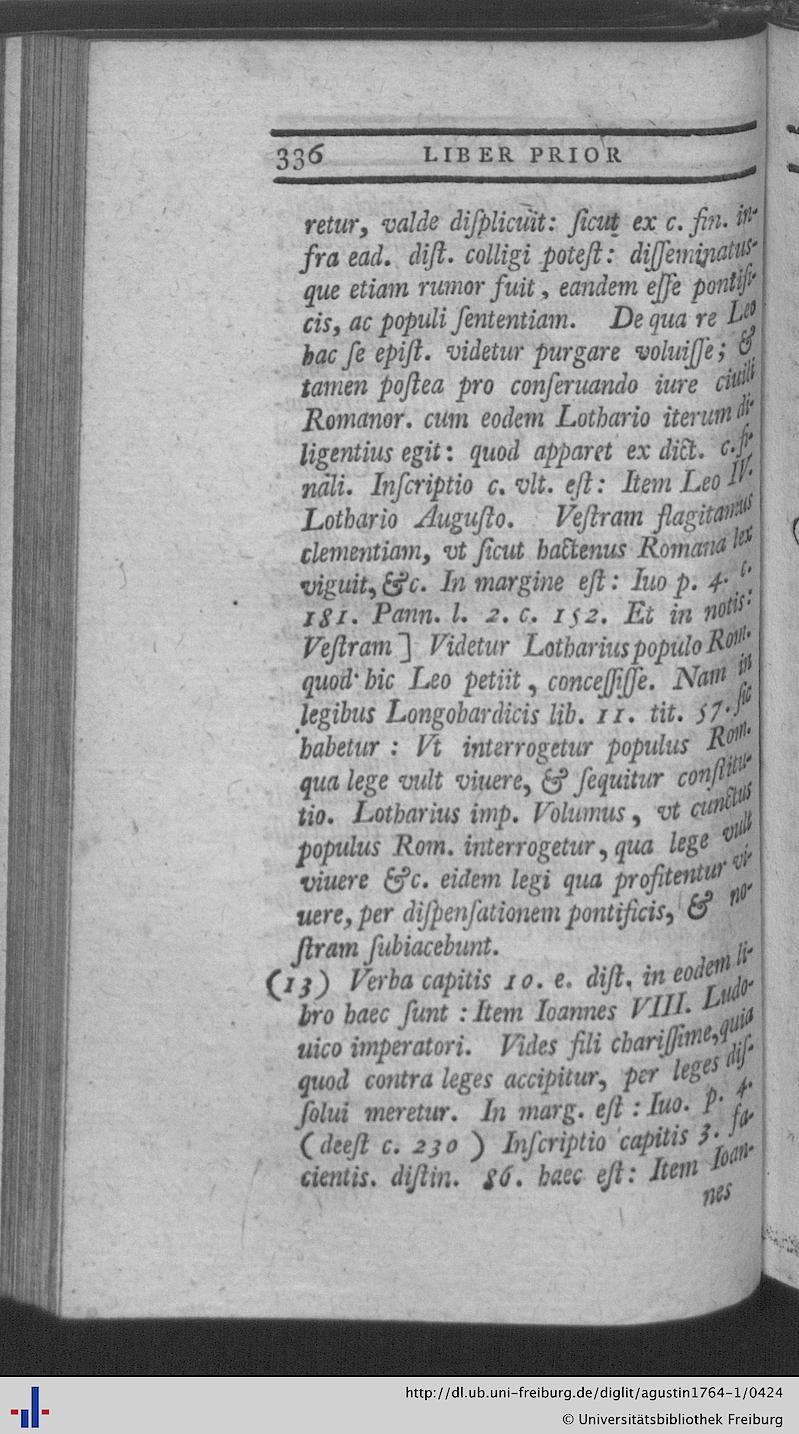 336 LIBER PRIOR
retur, valde diſplicuit: ſicut ex c. fin. in-
fra ead. diſt. colligi poteſt: diſſeminatus-
que etiam rumor fuit, eandem eſſe pontifi-
cis, ac populi ſententiam. De qua re Leo
hac ſe epiſt. videtur purgare voluiſſe; &
tamen poſtea pro conſeruando iure ciuili
Romanor. cum eodem Lothario iterum di-
ligentius egit: quod apparet ex dict. c. fi-
nali. Inſcriptio c. vlt. eſt: Item Leo IV.
Lothario Auguſto. Veſtram flagitamus
clementiam, vt ſicut hactenus Romana lex
viguit, &c. In margine eſt: Iuo p. 4. c.
181. Pann. l. 2. c. 152. Et in notis:
Veſtram] Videtur Lotharius populo Rom.
quod hic Leo petiit, conceſſiſſe. Nam in
legibus Longobardicis lib. 11. tit. 57. ſic
habetur: Vt interrogetur populus Rom.
qua lege vult viuere, & ſequitur conſtitu-
tio. Lotharius imp. Volumus, vt cunctus
populus Rom. interrogetur, qua lege vult
viuere &c. eidem legi qua profitentur vi-
uere, per diſpenſationem pontificis, & no-
ſtram ſubiacebunt.
(13) Verba capitis 10. e. diſt. in eodem li-
bro haec ſunt: Item Ioannes VIII. Ludo-
uico imperatori. Vides fili chariſſime, quia
quod contra leges accipitur, per leges diſ-
ſolui meretur. In marg. eſt: Iuo. p. 4.
(deeſt c. 230) Inſcriptio capitis 3. fa-
cientis. diſtin. 86. haec eſt: Item Ioan-
nes
http://dl.ub.uni-freiburg.de/diglit/agustin1764-1/0424
© Universitätsbibliothek Freiburg